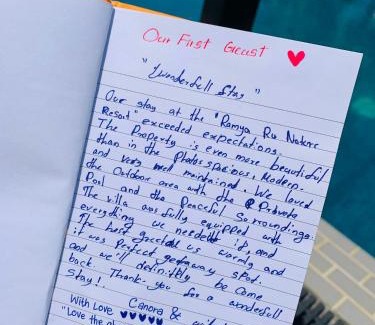 Our First Geust ♥
"Wunderfull Stay"
Our stay at the "Ramya Ru Nature
Resort" exceeded expectations.
The Property is even more beautiful
than in the Photos spacious, Modern,
and very well maintained. We loved
the Outdoor area with the Private
Pool and the Peaceful Sorroundings.
The villa was fully equipped with
everything we needed and
The host greeted us warmly and
it was Perfect getaway spot.
and we'll definitely be Come
back. Thank-you for a wonderfull
Stay!
With Love Canora &
"Love the